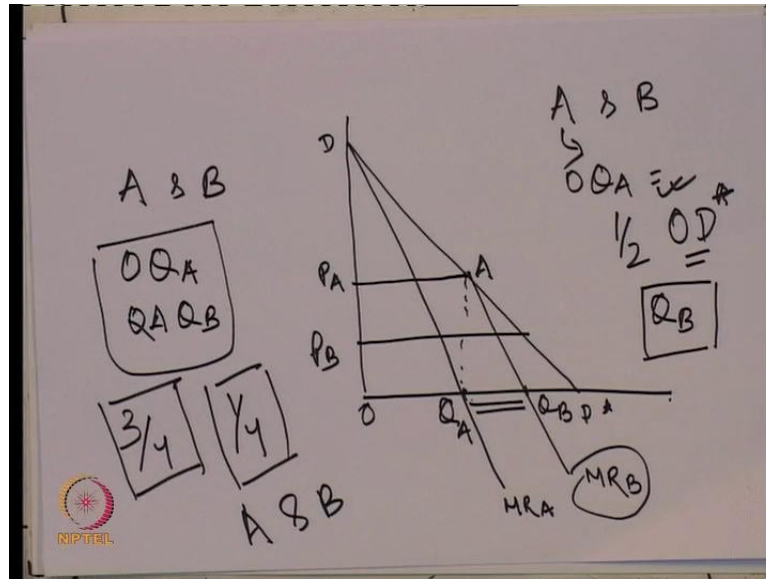 A & B
OQA
QAQB
3/4 1/4
A & B
D
PA
A
PB
O
QA
QB
D*
MRA
MRB
A & B
OQA =
1/2 OD*
QB
NPTEL